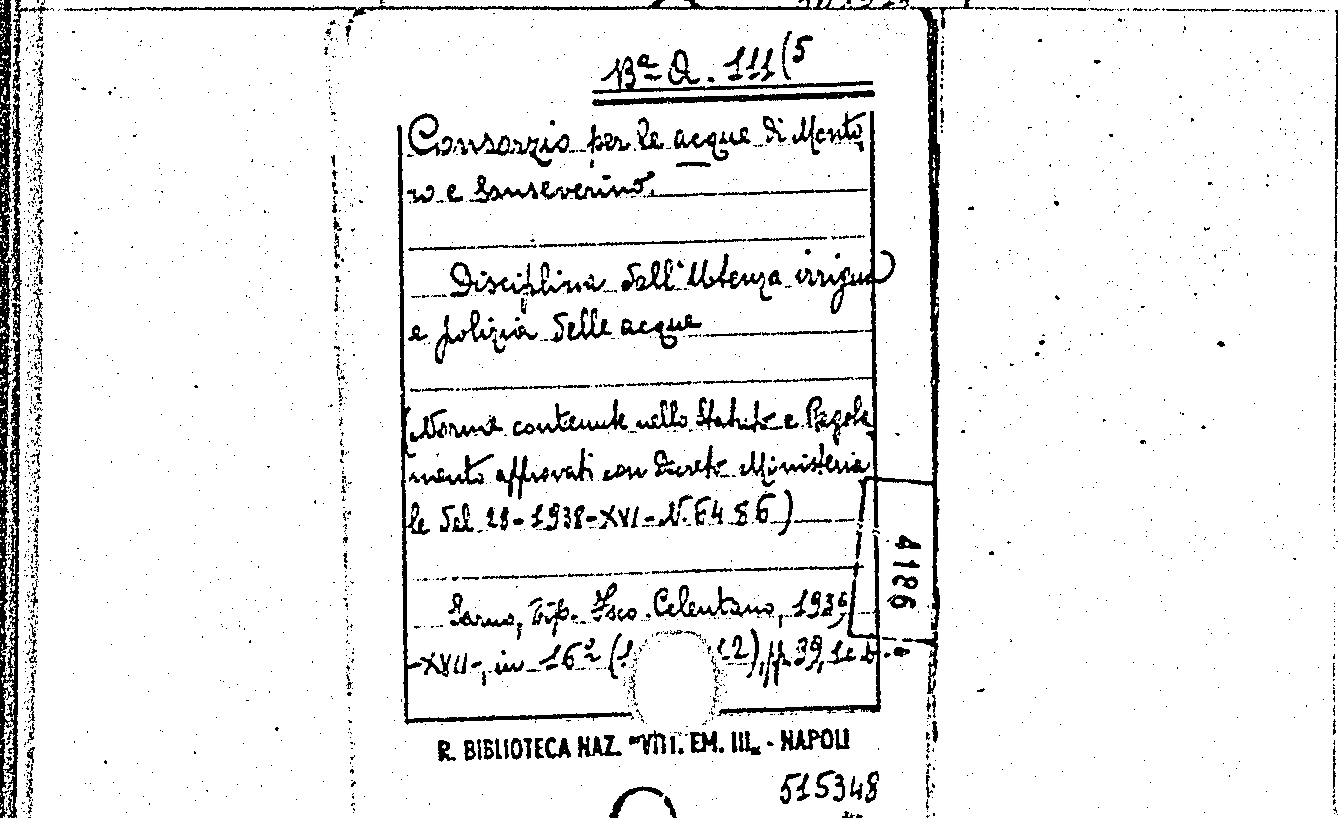 Bª Q. 111(5
Consorzio per le acque di Monto
ro e Sanseverino.
Disciplina dell'Utenza irrigua
e polizia delle acque
(Norme contenute nello Statuto e Regola
mento approvati con Decreto Ministeria
le del 29-1938-XVI-N. 6486)
4186
Sarno, Tip. Fsco. Celentano, 1939
-XVII-, in 16º (1 12), pp. 39, 1 c. b.
R. BIBLIOTECA NAZ. "VITT. EM. III" - NAPOLI
515348